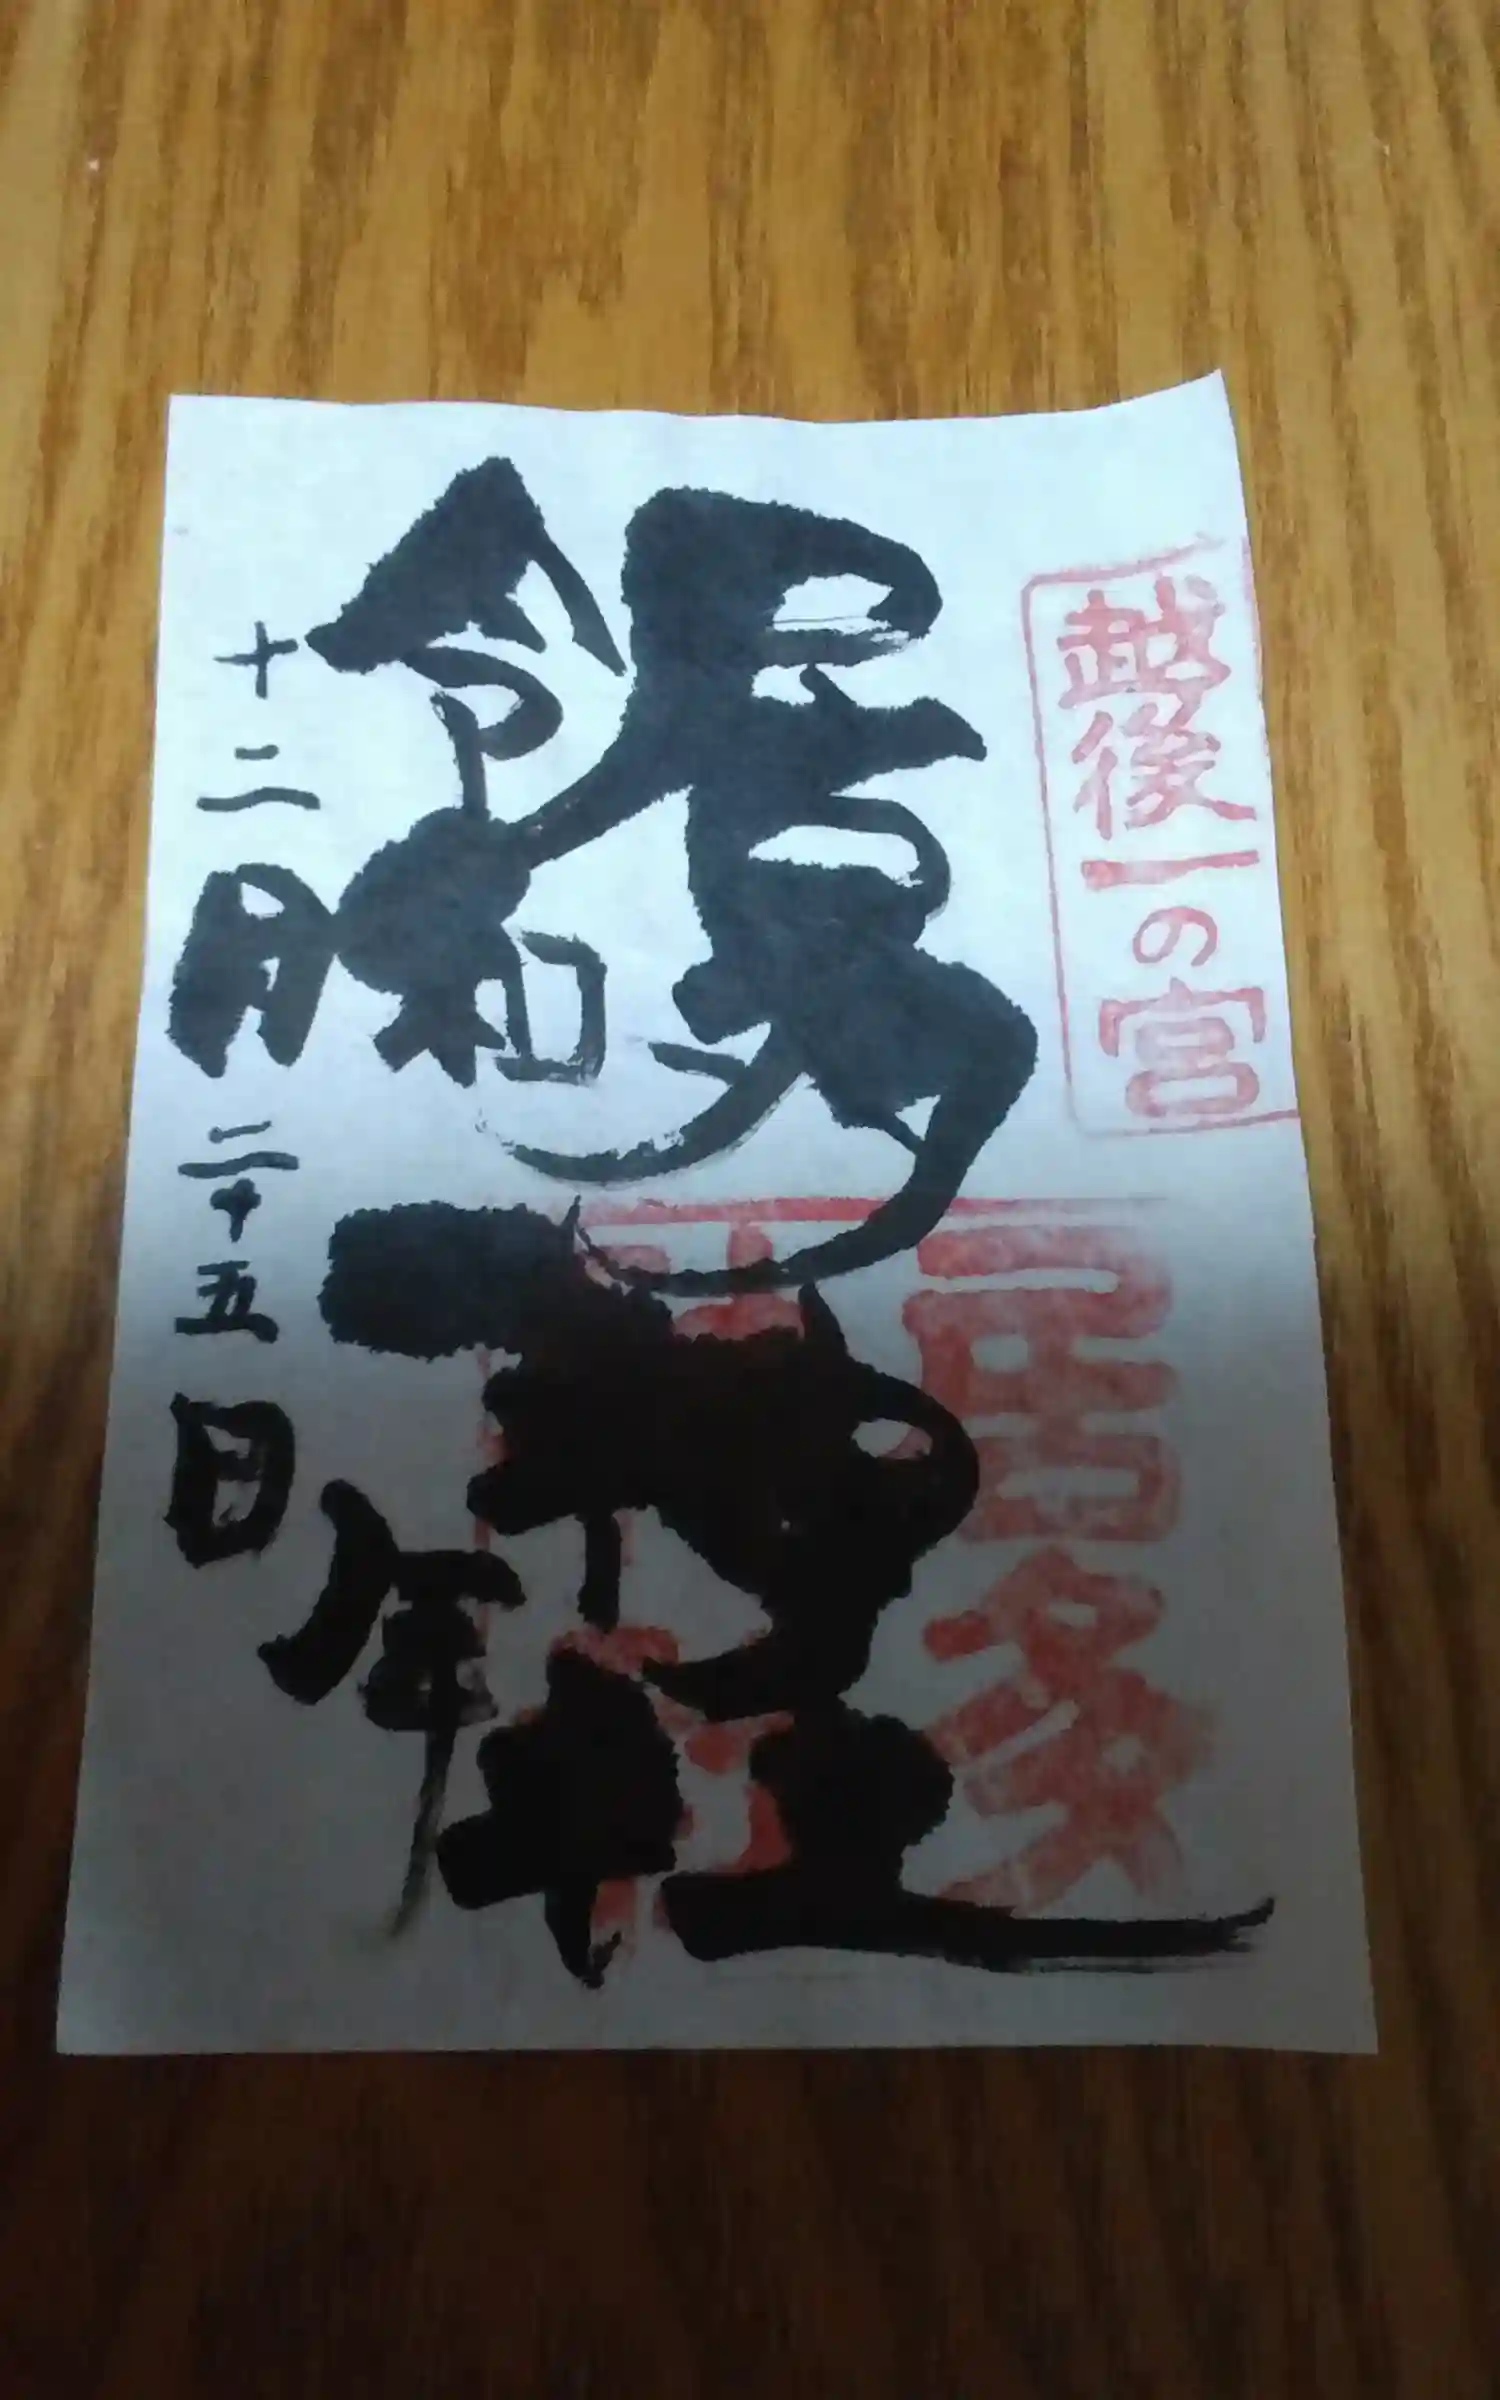 越後一の宮
居多神社
居多神社
令和八年
十二月二十五日